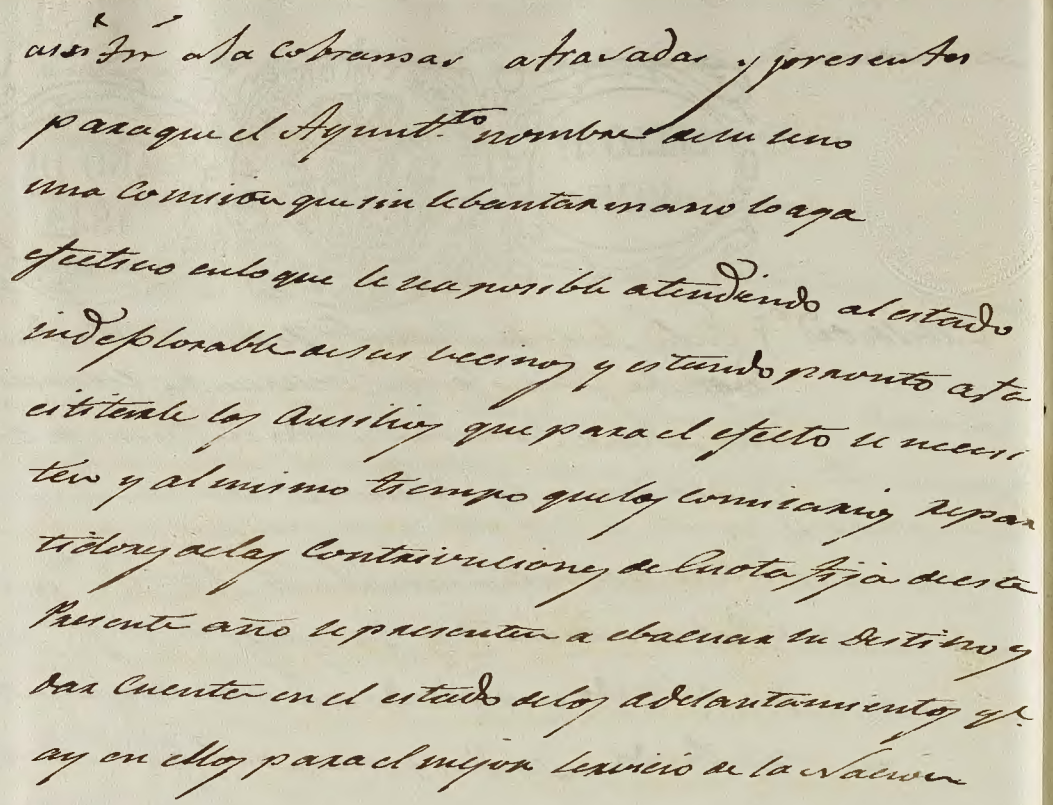 asistir ala cobransas atrasadas y presentes
paraque el Ayunt.to nombre desu seno
una Comision que sin lebantar mano lo aga
efectivo enlo que le sea posible atendiendo al estado
indeplorable desus vecinos y estando pronto a fa
cilitarle los Ausilios que para el efecto se necesi
ten y al mismo tiempo quelos Comisarios repar
tidores delas Contrivuciones de Cuota fija de este
Presente año se presenten a ebacuar su Destino y
dar Cuenta en el estado delos adelantamientos q.e
ay en ellos para el mejor servicio de la Nacion